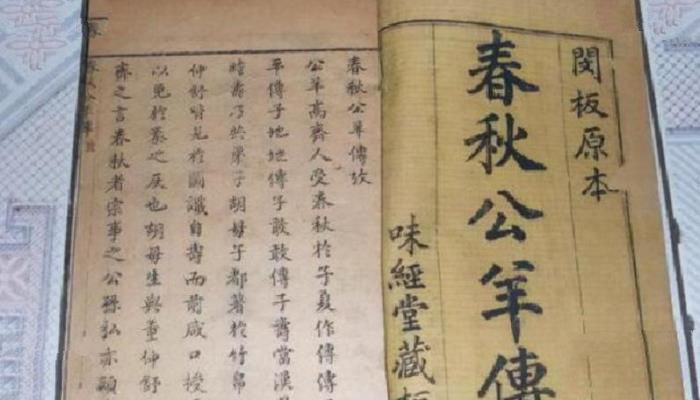 閔板原本
春秋公羊傳
味經堂藏板
春秋公羊傳攷
公羊高齊人受春秋於子夏作傳傳
平傳子地地傳子敢敢傳子壽當漢
時壽乃於弟子胡母子都著於竹帛
仲舒皆見於圖讖自壽而前咸口授
以免於秦之戾也胡母生與董仲舒
齊之言春秋者宗事之公孫弘亦頗